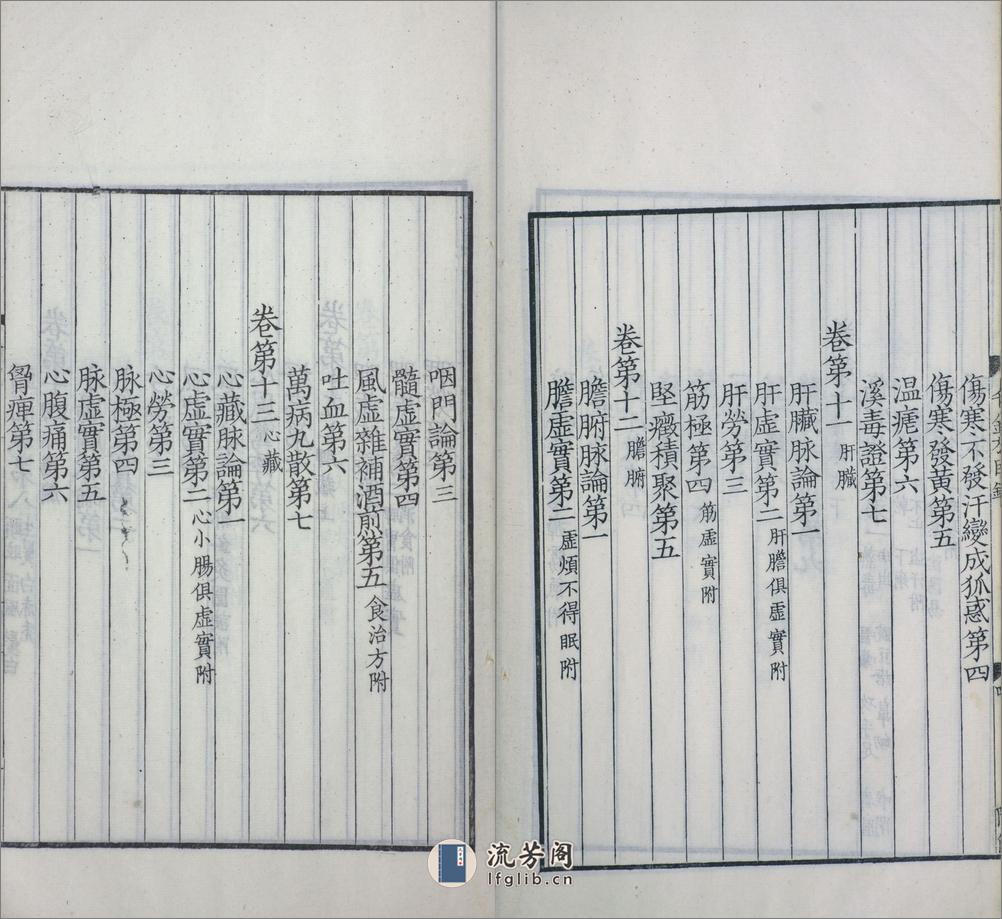 傷寒不發汗變成狐惑第四
傷寒發黃第五
温瘧第六
溪毒證第七
卷第十一 肝臟
肝臟脉論第一
肝虛實第二 肝膽俱虛實附
肝勞第三
筋極第四 筋虛實附
堅癥積聚第五
卷第十二 膽腑
膽腑脉論第一
膽虛實第二 虛煩不得眠附
咽門論第三
髓虛實第四
風虛雜補酒煎第五 食治方附
吐血第六
萬病丸散第七
卷第十三 心藏
心藏脉論第一
心虛實第二 心小腸俱虛實附
心勞第三
脉極第四
脉虛實第五
心腹痛第六
胷痺第七
流芳阁
lfglib.cn